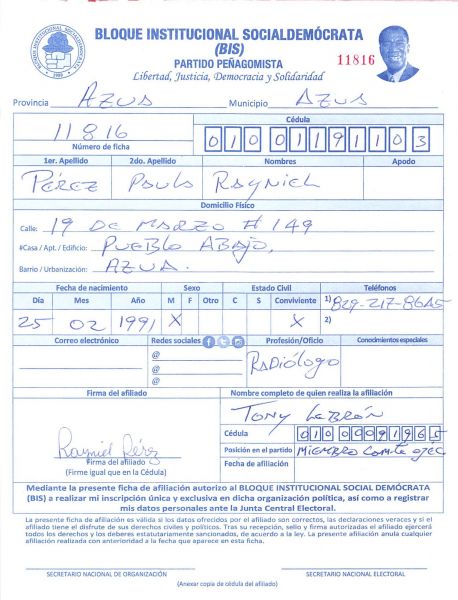 BLOQUE INSTITUCIONAL SOCIALDEMÓCRATA
(BIS)
PARTIDO PEÑAGOMISTA
11816
Libertad, Justicia, Democracia y Solidaridad
Provincia AZUA Municipio AZUA
11816
Número de ficha
Cédula
01001191103
1er. Apellido 2do. Apellido Nombres Apodo
PÉREZ PAULA RAYNIEL
Domicilio Físico
Calle: 19 DE MARZO # 149
#Casa / Apt. / Edificio: PUEBLO ABAJO,
Barrio / Urbanización: AZUA.
Fecha de nacimiento Sexo Estado Civil Teléfonos
Día Mes Año M F Otro C S Conviviente 1) 829-217-8645
25 02 1991 X X 2)
Correo electrónico Redes sociales Profesión/Oficio Conocimientos especiales
@ RADIÓLOGO
@
@
Firma del afiliado Nombre completo de quien realiza la afiliación
TONY LEBRÓN
Cédula
Rayniel Pérez
Posición en el partido MIEMBRO COMITÉ EJEC
Firma del afiliado
(Firme igual que en la Cédula)
Fecha de afiliación
Mediante la presente ficha de afiliación autorizo al BLOQUE INSTITUCIONAL SOCIAL DEMÓCRATA
(BIS) a realizar mi inscripción única y exclusiva en dicha organización política, así como a registrar
mis datos personales ante la Junta Central Electoral.
La presente ficha de afiliación es válida si los datos ofrecidos por el afiliado son correctos, las declaraciones veraces y si el
afiliado tiene el disfrute de sus derechos civiles y políticos. Tras su recepción, sello y firma autorizadas el afiliado ejercerá
todos los derechos y los deberes estatutariamente sancionados, de acuerdo a la ley. La presente afiliación anula cualquier
afiliación realizada con anterioridad a la fecha que aparece en esta ficha.
SECRETARIO NACIONAL DE ORGANIZACIÓN SECRETARIO NACIONAL ELECTORAL
(Anexar copia de cédula del afiliado)